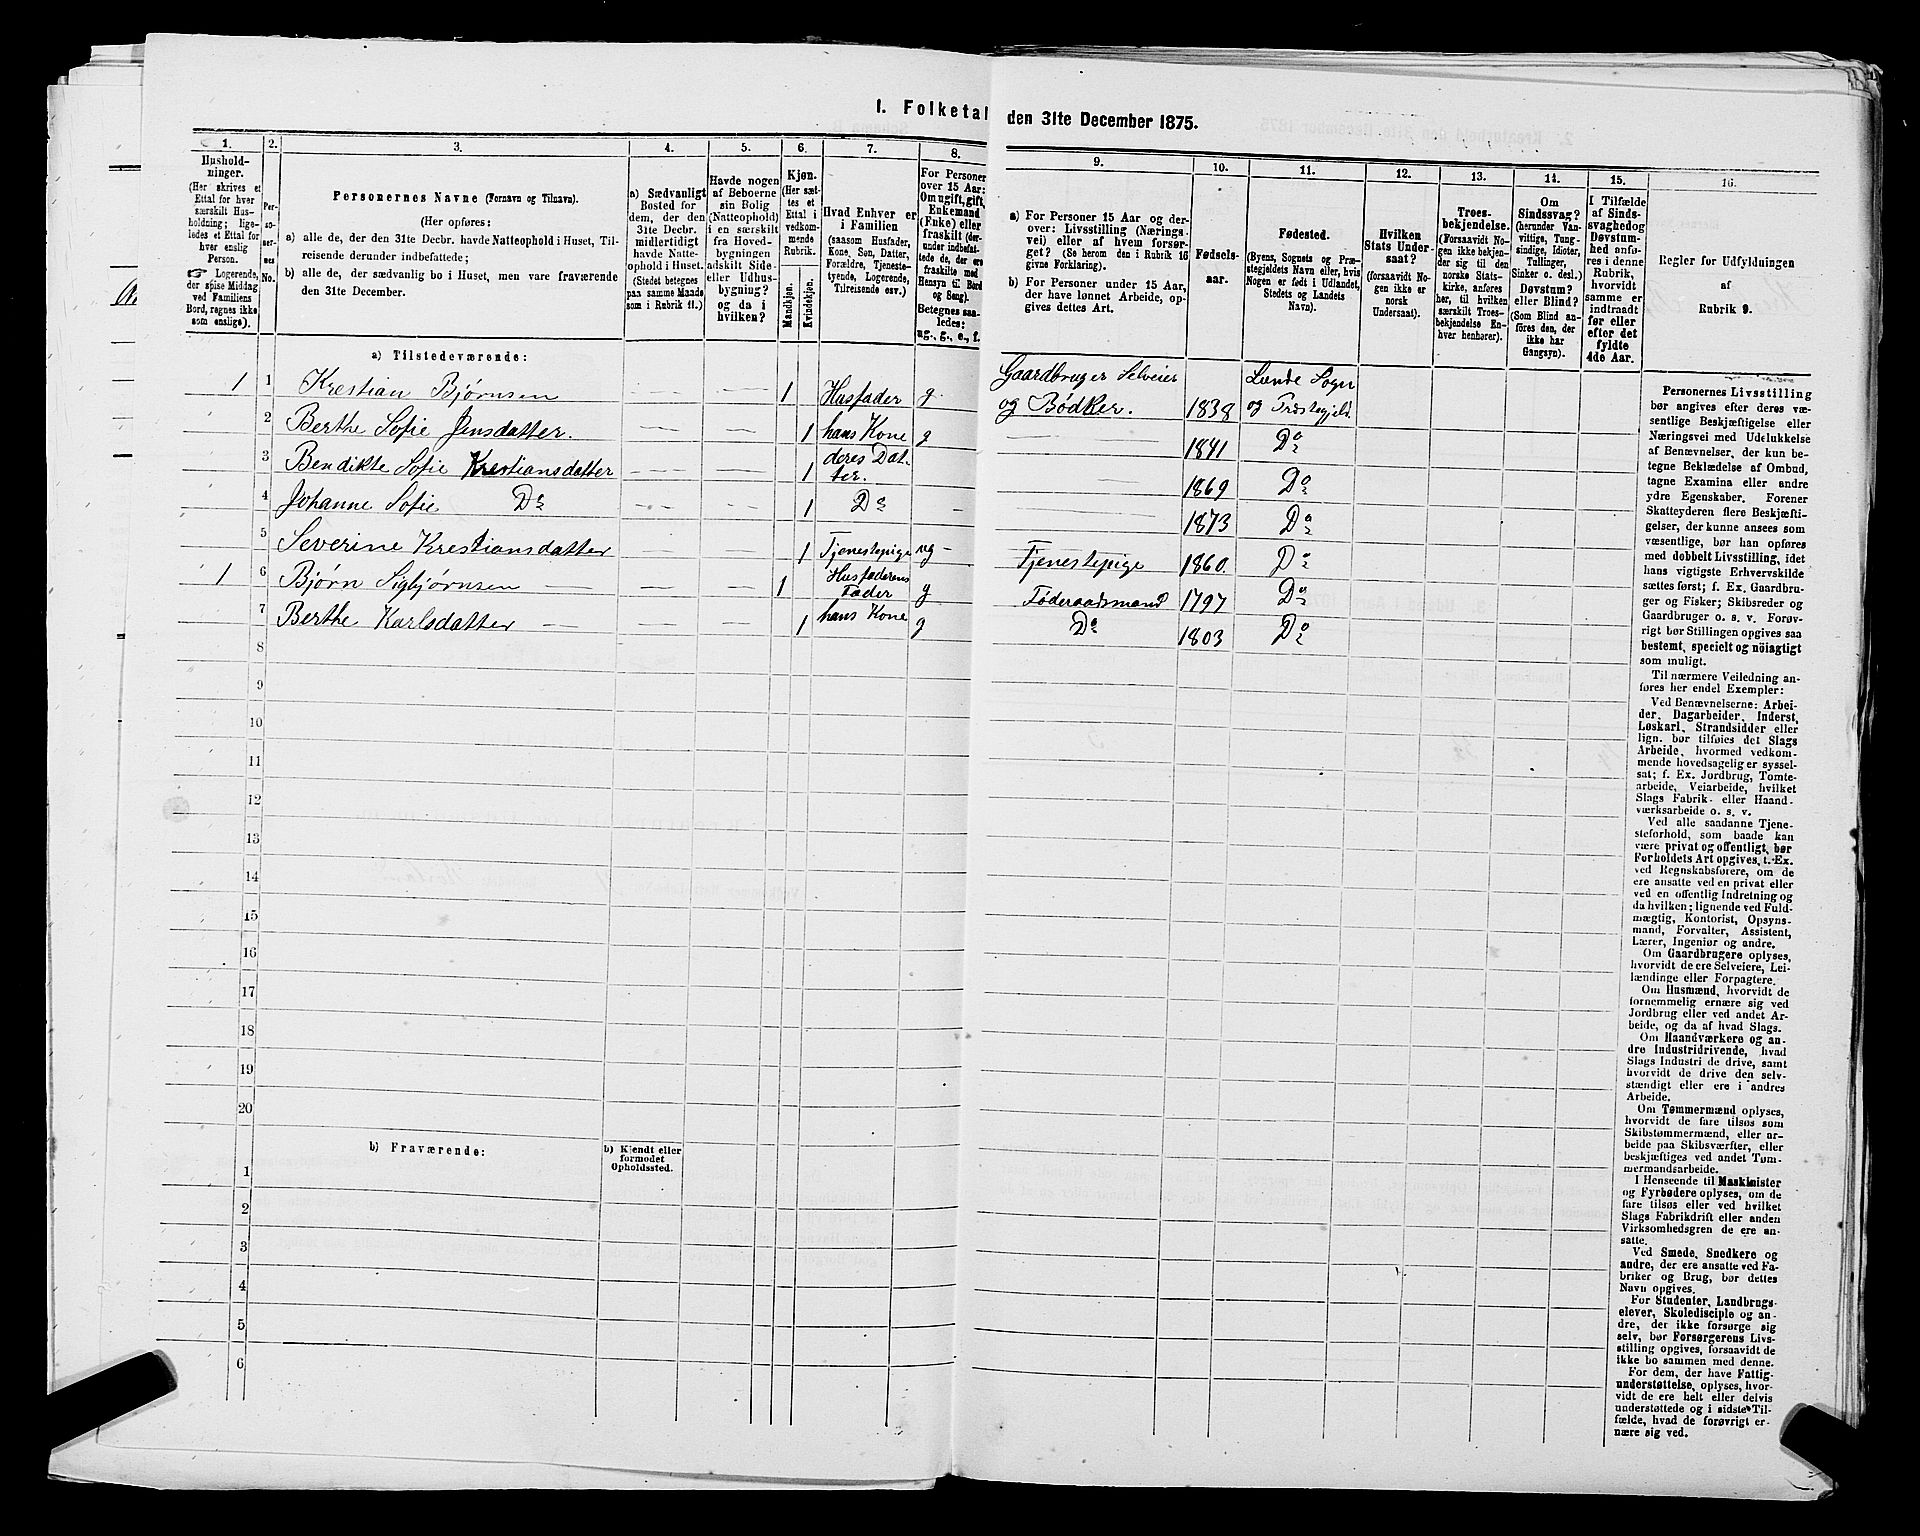 I. Folketal den 31te December 1875.
1. 2. 3. 4. 5. 6. 7. 8. 9. 10. 11. 12. 13. 14. 15. 16.
Hushold-
ninger.
(Her skrives et
Ettal for hver
særskilt Hus-
holdning; lige-
ledes et Ettal for
hver enslig
Person.
☞ Logerende,
der spise Middag
ved Familiens
Bord, regnes ikke
som enslige).
Per-
so-
ner-
nes
No.
Personernes Navne (Fornavn og Tilnavn).
(Her opføres:
a) alle de, der den 31te Decbr. havde Natteophold i Huset, Til-
reisende derunder indbefattede;
b) alle de, der sædvanlig bo i Huset, men vare fraværende
den 31te December.
a) Sædvanligt
Bosted for
dem, der den
31te Decbr.
midlertidigt
havde Natte-
ophold i Huset.
(Stedet betegnes
paa samme Maade
som i Rubrik 11.)
Havde nogen
af Beboerne
sin Bolig
(Natteophold)
i en særskilt
fra Hoved-
bygningen
adskilt Side-
eller Udhus-
bygning?
og da i
hvilken?
Kjøn.
(Her sæt-
tes et
Ettal i
vedkom-
mende
Rubrik.
Mandkjøn.
Kvindekjøn.
Hvad Enhver er
i Familien
(saasom Husfader,
Kone, Søn, Datter,
Forældre, Tjeneste-
tyende, Logerende,
Tilreisende osv.)
For Personer
over 15 Aar:
Om ugift, gift,
Enkemand
(Enke) eller
fraskilt (der-
under indbefat-
tede de, der ere
fraskilte med
Hensyn til Bord
og Seng).
Betegnes saa-
ledes:
ug., g., e., f.
a) For Personer 15 Aar og der-
over: Livsstilling (Nærings-
vei) eller af hvem forsør-
get? (Se herom den i Rubrik 16
givne Forklaring).
b) For Personer under 15 Aar,
der have lønnet Arbeide, op-
gives dettes Art.
Fødsels-
aar.
Fødested.
(Byens, Sognets og Præ-
stegjeldets Navn eller, hvis
Nogen er født i Udlandet,
Stedets og Landets
Navn).
Hvilken
Stats Under-
saat?
(forsaavidt No-
gen ikke er
norsk
Undersaat).
Troes-
bekjendelse.
(Forsaavidt No-
gen ikke bekjen-
der sig til den
norske Stats-
kirke, anføres
her, til hvilken
særskilt Troes-
bekjendelse En-
hver henhører).
Om
Sindssvag?
(herunder Van-
vittige, Tung-
sindige, Idioter,
Tullinger,
Sinker o. desl.)
Døvstum?
eller Blind?
(Som Blind an-
føres den, der
ikke har
Gangsyn).
I Tilfælde
af Sinds-
svaghed og
Døvstum-
hed anfø-
res i denne
Rubrik,
hvorvidt
samme er
indtraadt
før eller
efter det
fyldte
4de Aar.
Regler for Udfyldningen
af
Rubrik 9.
a) Tilstedeværende:
1 1 Krestian Bjørnsen — — 1 Husfader g Gaardbruger Selveier og Bødker. 1838 Lunde Sogn og Præstegjeld
2 Berthe Sofie Jensdatter. — — 1 hans Kone g 1841 Do
3 Bendikte Sofie Krestiansdatter — — 1 deres Dat-ter. 1869 Do
4 Johanne Sofie Do — — 1 Do — 1873 Do
5 Severine Krestiansdatter — — 1 Tjenestepige ug — Tjenestepige 1860 Do
1 6 Bjørn Sigbjørnsen — — 1 Husfaderens Fader g Føderaadsmand 1797 Do
7 Berthe Karlsdatter — — 1 hans Kone g Do 1803 Do
8
9
10
11
12
13
14
15
16
17
18
19
20
b) Fraværende:
b) Kjendt eller
formodet
Opholdssted.
1
2
3
4
5
6
Personernes Livsstilling
bør angives efter deres væ-
sentlige Beskjæftigelse eller
Næringsvei med Udelukkelse
af Benævnelser, der kun be-
tegne Beklædelse af Ombud,
tagne Examina eller andre
ydre Egenskaber. Forener
Skatteyderen flere Beskjæfti-
gelser, der kunne ansees som
væsentlige, bør han opføres
med dobbelt Livsstilling, idet
hans vigtigste Erhvervskilde
sættes først; f. Ex. Gaardbru-
ger og Fisker; Skibsreder og
Gaardbruger o. s. v. Forøv-
rigt bør Stillingen opgives saa
bestemt, specielt og nöiagtigt
som muligt.
Til nærmere Veiledning an-
føres her endel Exempler:
Ved Benævnelserne: Arbei-
der, Dagarbeider, Inderst,
Løskarl, Strandsidder eller
lign. bør tilføies det Slags
Arbeide, hvormed vedkom-
mende hovedsagelig er syssel-
sat; f. Ex. Jordbrug, Tomte-
arbeide, Veiarbeide, hvilket
Slags Fabrik- eller Haand-
værksarbeide o. s. v.
Ved alle saadanne Tjene-
steforhold, som baade kan
være privat og offentligt, bør
Forholdets Art opgives, t. Ex.
ved Regnskabsførere, om de
ere ansatte ved en privat eller
ved en offentlig Indretning og
da hvilken; lignende ved Fuld-
mægtig, Kontorist, Opsyns-
mand, Forvalter, Assistent,
Lærer, Ingeniør og andre.
Om Gaardbrugere oplyses,
hvorvidt de ere Selveiere, Lei-
lændinge eller Forpagtere.
Om Husmænd, hvorvidt de
fornemmelig ernære sig ved
Jordbrug eller ved andet Ar-
beide, og da af hvad Slags.
Om Haandværkere og an-
dre Industridrivende, hvad
Slags Industri de drive, samt
hvorvidt de drive den selv-
stændigt eller ere i andres
Arbeide.
Om Tømmermænd oplyses,
hvorvidt de fare tilsøs som
Skibstømmermænd, eller ar-
beide paa Skibsværfter, eller
beskjæftiges ved andet Tøm-
mermandsarbeide.
I Henseende til Maskinister
og Fyrbødere oplyses, om de
fare tilsøs eller ved hvilket
Slags Fabrikdrift eller anden
Virksomhedsgren de ere an-
satte.
Ved Smede, Snedkere og
andre, der ere ansatte ved Fa-
briker og Brug, bør dettes
Navn opgives.
For Studenter, Landbrugs-
elever, Skoledisciple og an-
dre, der ikke forsørge sig
selv, bør Forsørgerens Livs-
stilling opgives, forsaavidt de
ikke bo sammen med denne.
For dem, der have Fattig-
understøttelse, oplyses, hvor-
vidt de ere helt eller delvis
understøttede og i sidste Til-
fælde, hvad de forøvrigt er-
nære sig ved.